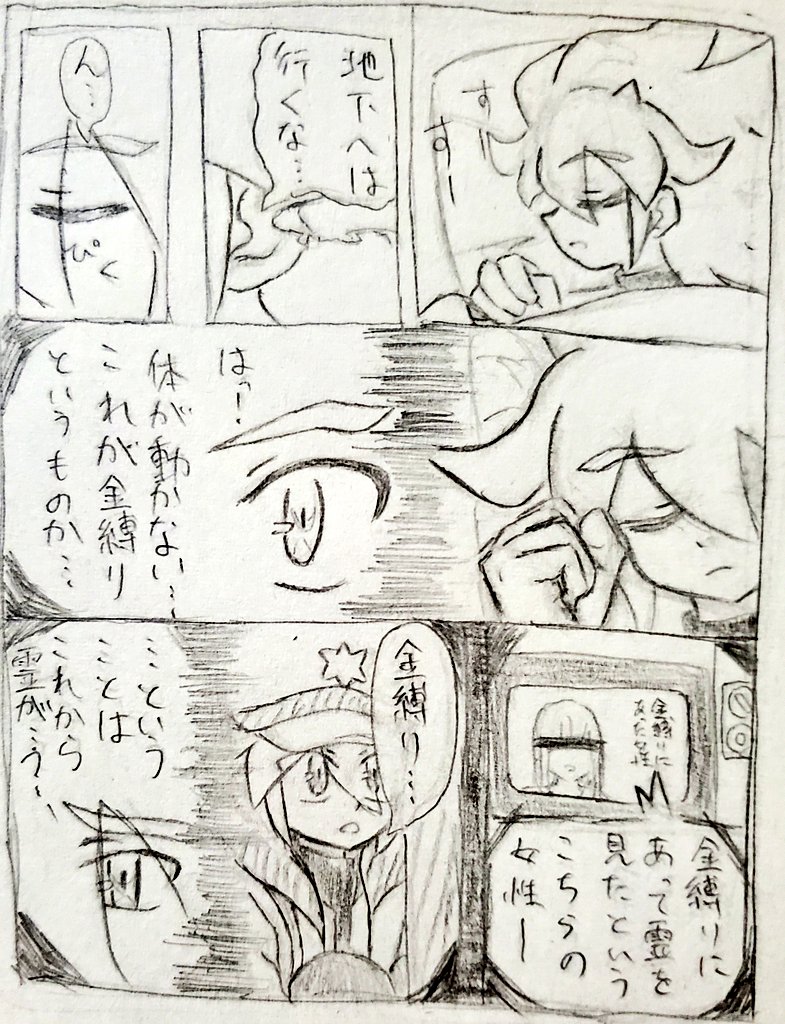 すー
すー
地下へは
行くな…
ん…
ぴく
はっ!
体が動かない…
これが金縛り
というものか…
金縛りに
あった女性
金縛りに
あって霊を
見たという
こちらの
女性ー
金縛り…
…という
ことは
これから
霊が…う…